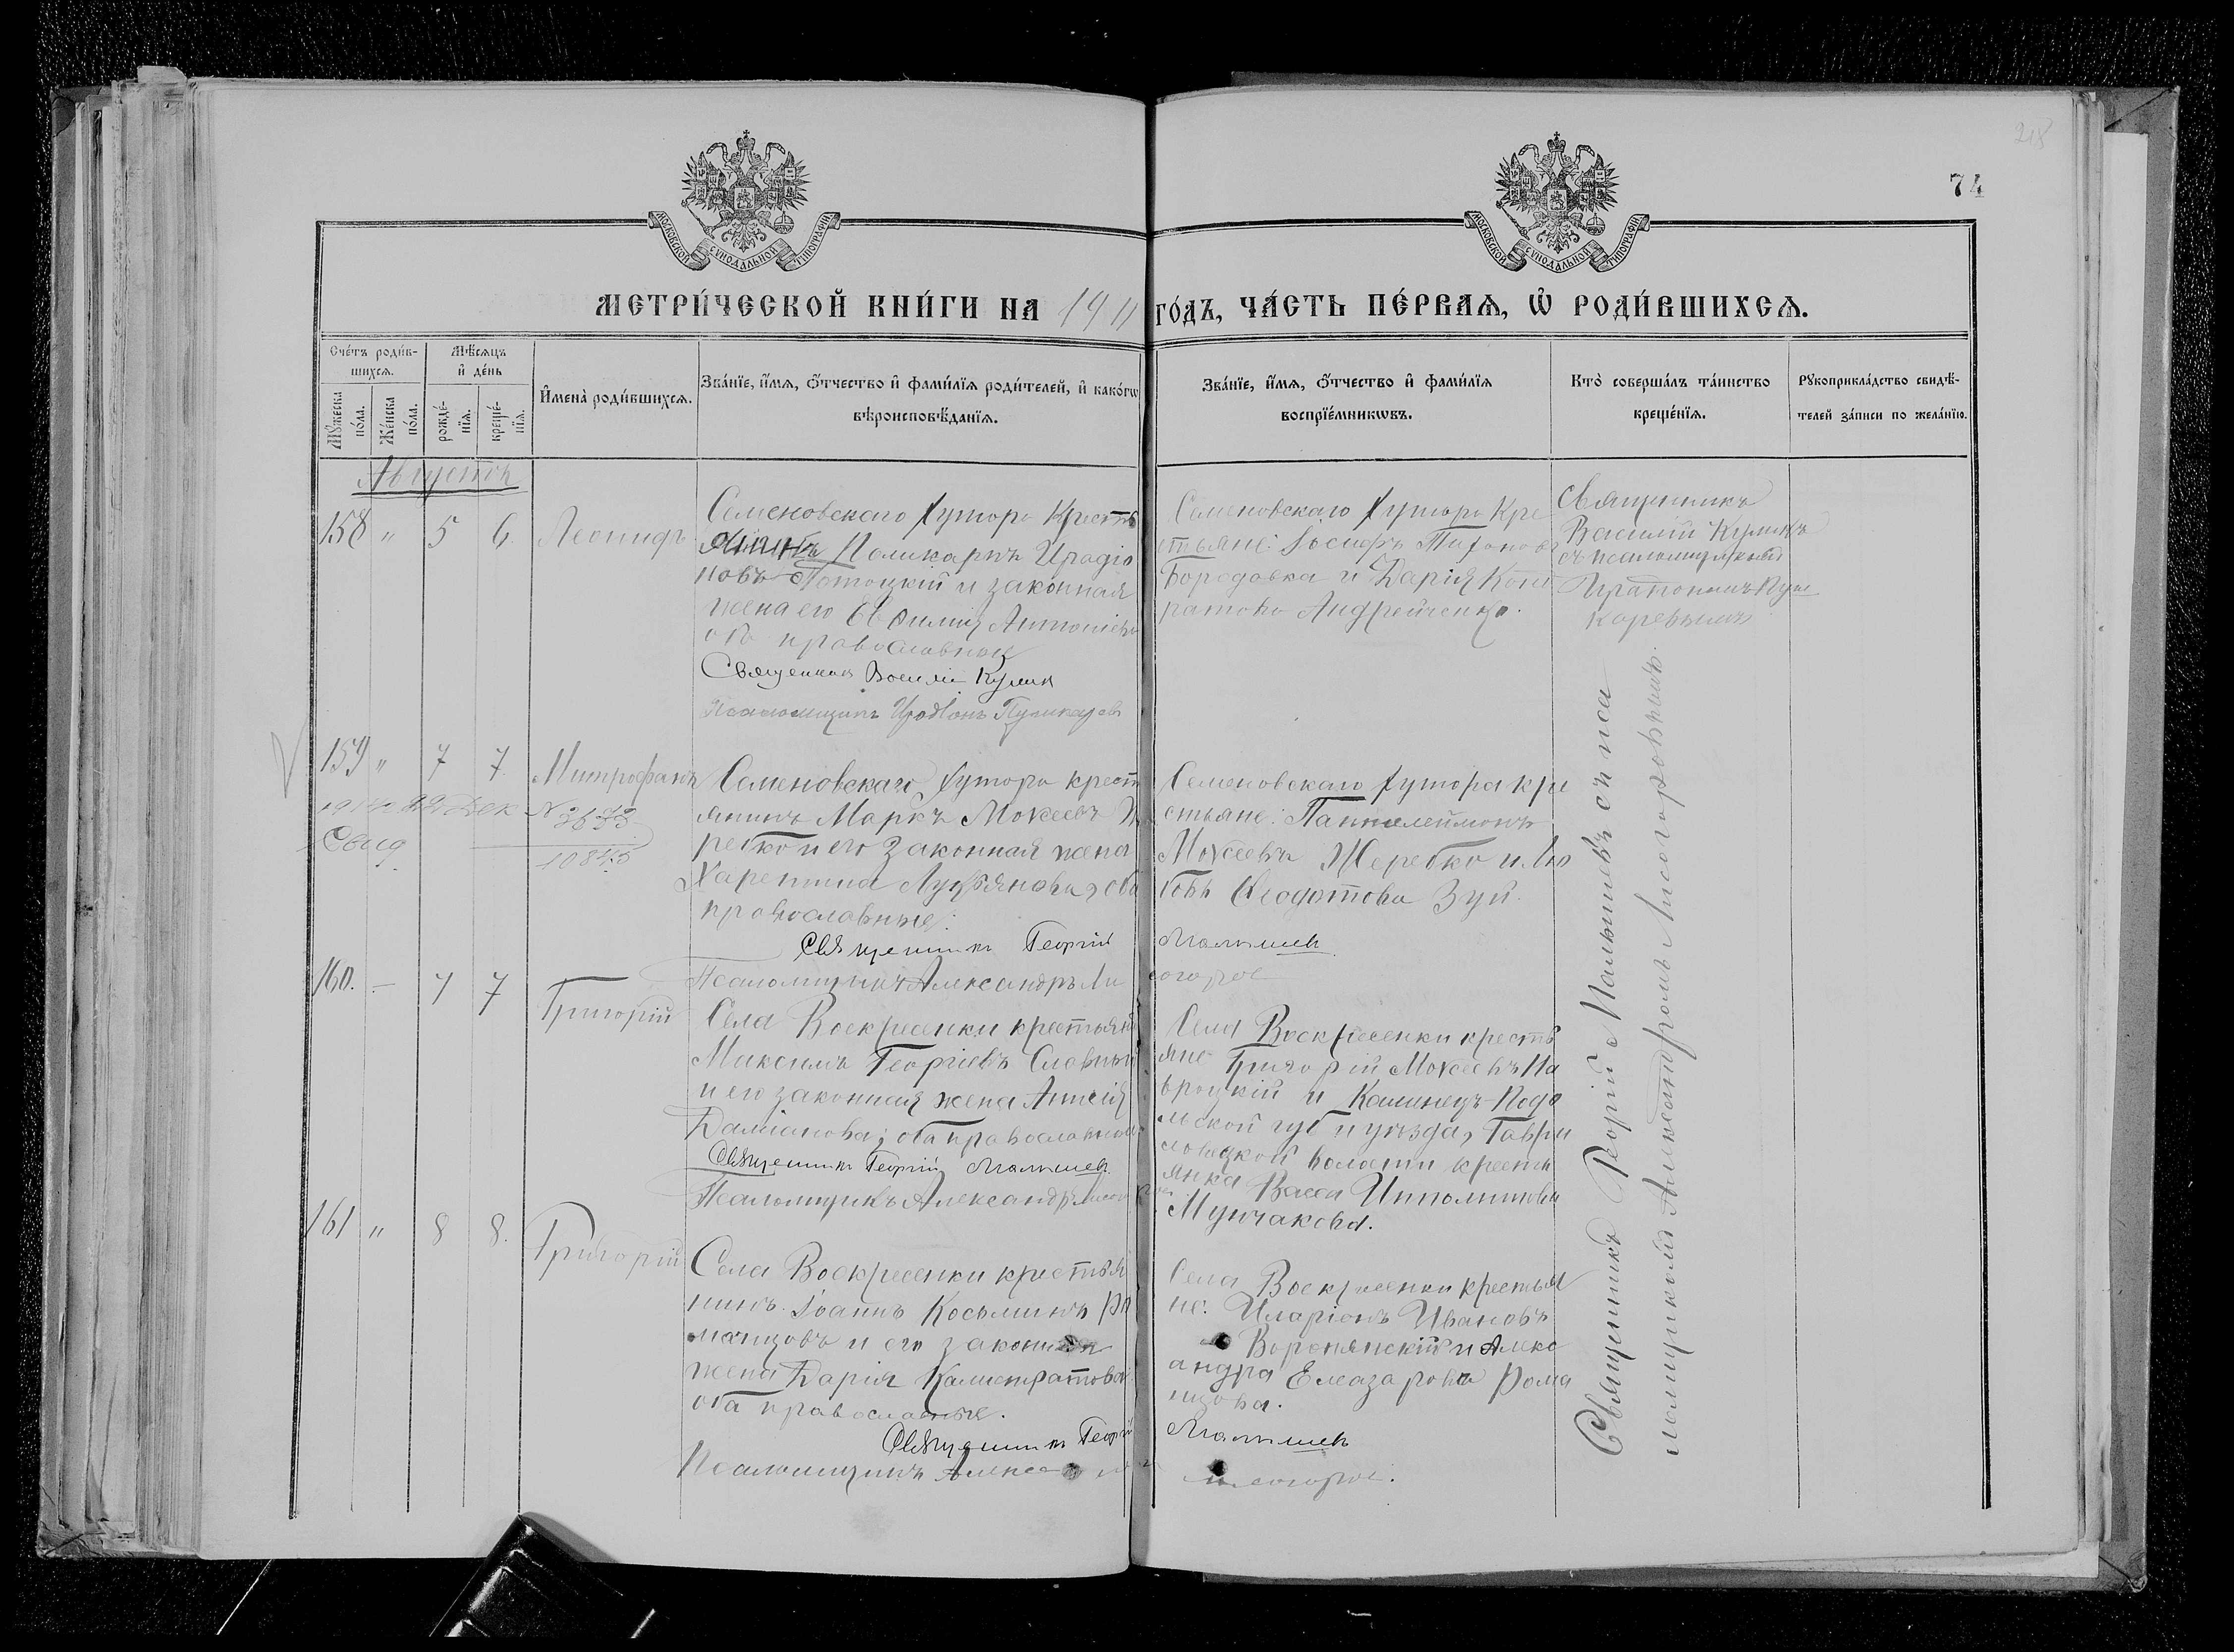 218
74
МОСКОВСКОЙ СѴНОДАЛЬНОЙ ТИПОГРАФІИ
МОСКОВСКОЙ СѴНОДАЛЬНОЙ ТИПОГРАФІИ
МЕТРИ́ЧЕСКОЙ КНИ́ГИ НА 1911 ГО́ДЪ, ЧА́СТЬ ПЕ́РВАЯ, Ѽ РОДИ́ВШИХСЯ.
Сче́тъ роди́вшихся.
Мꙋ́жеска по́ла.
Же́нска по́ла.
Мѣ́сяцъ и҆ де́нь
рожде́нїя.
креще́нїя.
И҆мена̀ роди́вшихся.
Зва́нїе, и҆́мя, ѻ҆́тчество и҆ фами́лїя роди́телей, и҆ како́гѡ
вѣроисповѣ́данїя.
Зва́нїе, и҆́мя, ѻ҆́тчество и҆ фами́лїя
воспрїе́мникѡвъ.
Кто̀ соверша́лъ та́инство
креще́нїя.
Рꙋкоприкла́дство свидѣ́-
телей за́писи по жела́нїю.
Августъ
158 " 5 6. Леонидъ
Семеновскаго хутора Кресть
янинъ Поликарпъ Иродіо
новъ Потоцкій и законная
жена его Евфимія Антоніева
оба православные
Священникъ Василій Куликъ
Псаломщикъ Иродіонъ
Семеновскаго хутора Кре
стьяне: Іосифъ Тихоновъ
Бородавка и Дарія Конд
ратова Андрейченко.
Священникъ
Василій Куликъ
съ псаломщикомъ
159 " 7 7. Митрофанъ
Свид
Семеновскаго хутора крест
янинъ Маркъ Мокеевъ Же
ребко и его законная жена
Харитина Лукьянова, оба
православные.
Священникъ Георгій Малышевъ
Псаломщикъ Александръ Лисогоров
Семеновскаго хутора кре
стьяне: Пантелеймонъ
Мокеевъ Жеребко и Лю
бовь Ѳеодотова Зуй.
160. - 7 7 Григорій
Села Воскресенки крестьянин
Максимъ Георгіевъ Славный
и его законная жена Анисія
Даміанова; оба православные
Священникъ Георгій Малышевъ
Псаломщикъ Александръ
Села Воскресенки кресть
яне Григорій Мокеевъ На
вроцкій и Каминецъ-Подо
льской губ и уѣзда, Гаври
ловецкой волости кресть
янка Васса Ипполитова
Мунчакова.
161 " 8 8. Григорій
Села Воскресенки крестья
нинъ Іоаннъ Косьминъ Ро
манцовъ и его законная
жена Дарія Калистратова
оба православные.
Священникъ Георгій Малышевъ
Псаломщикъ Александръ Лисогоров.
Села Воскресенки крестья
не: Иларіонъ Ивановъ
Воронянскій и Алекс
андра Елеазарова Рома
нцова.
Священникъ Георгій Малышевъ съ пса
ломщикомъ Александромъ Лисогоровымъ.